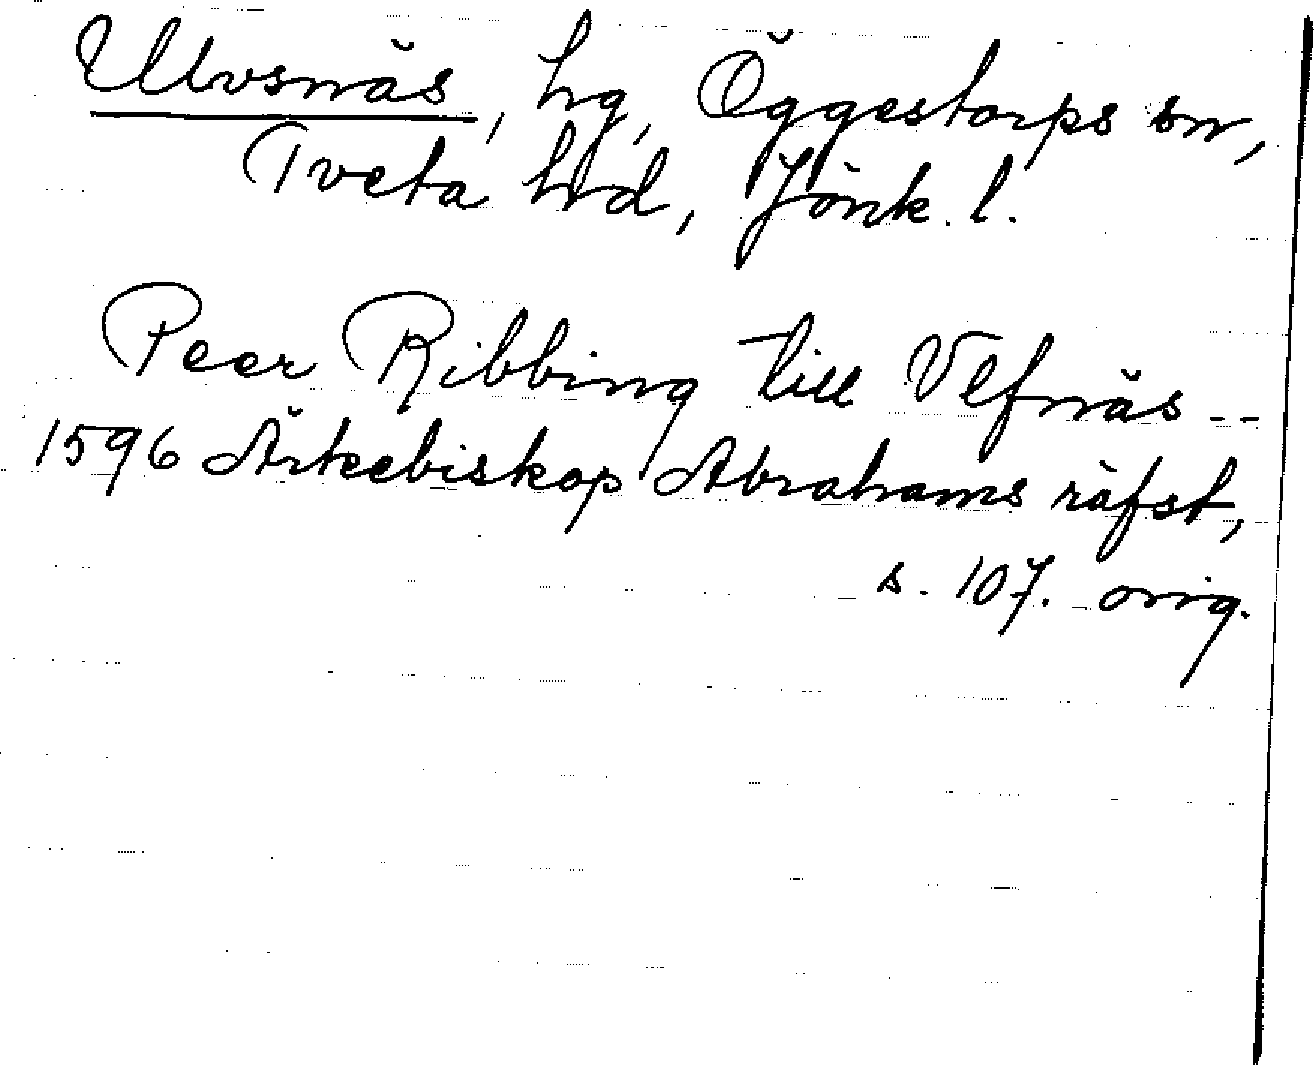 Ulvsnäs, hg, Öggestorps sn,
Tveta hd, Jönk. l.
Peer Ribbing till Vlfnäs --
1596 Ärkebiskop Abrahams räfst,
s. 107. orig.